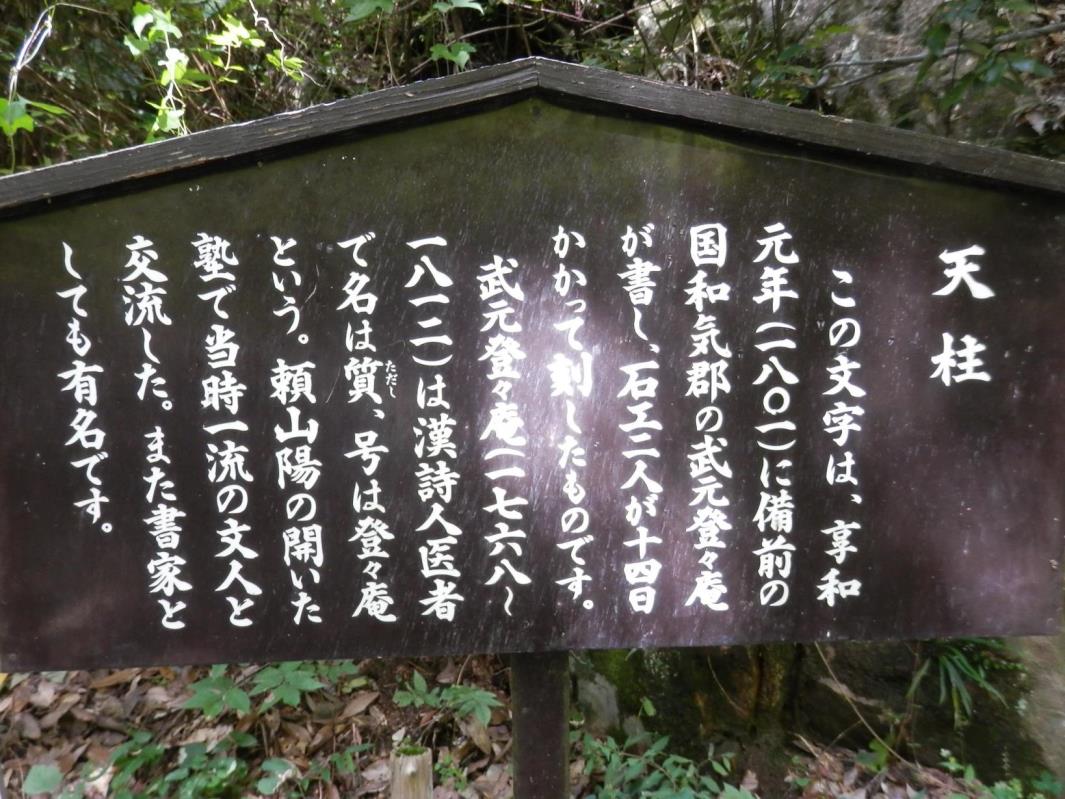 天柱
この文字は、享和
元年(一八〇一)に備前の
国和気郡の武元登々庵
が書し、石工二人が十四日
かかって刻したものです。
武元登々庵(一七六八〜
一八一二)は漢詩人医者
で名は質、号は登々庵
ただし
という。頼山陽の開いた
塾で当時一流の文人と
交流した。また書家と
しても有名です。